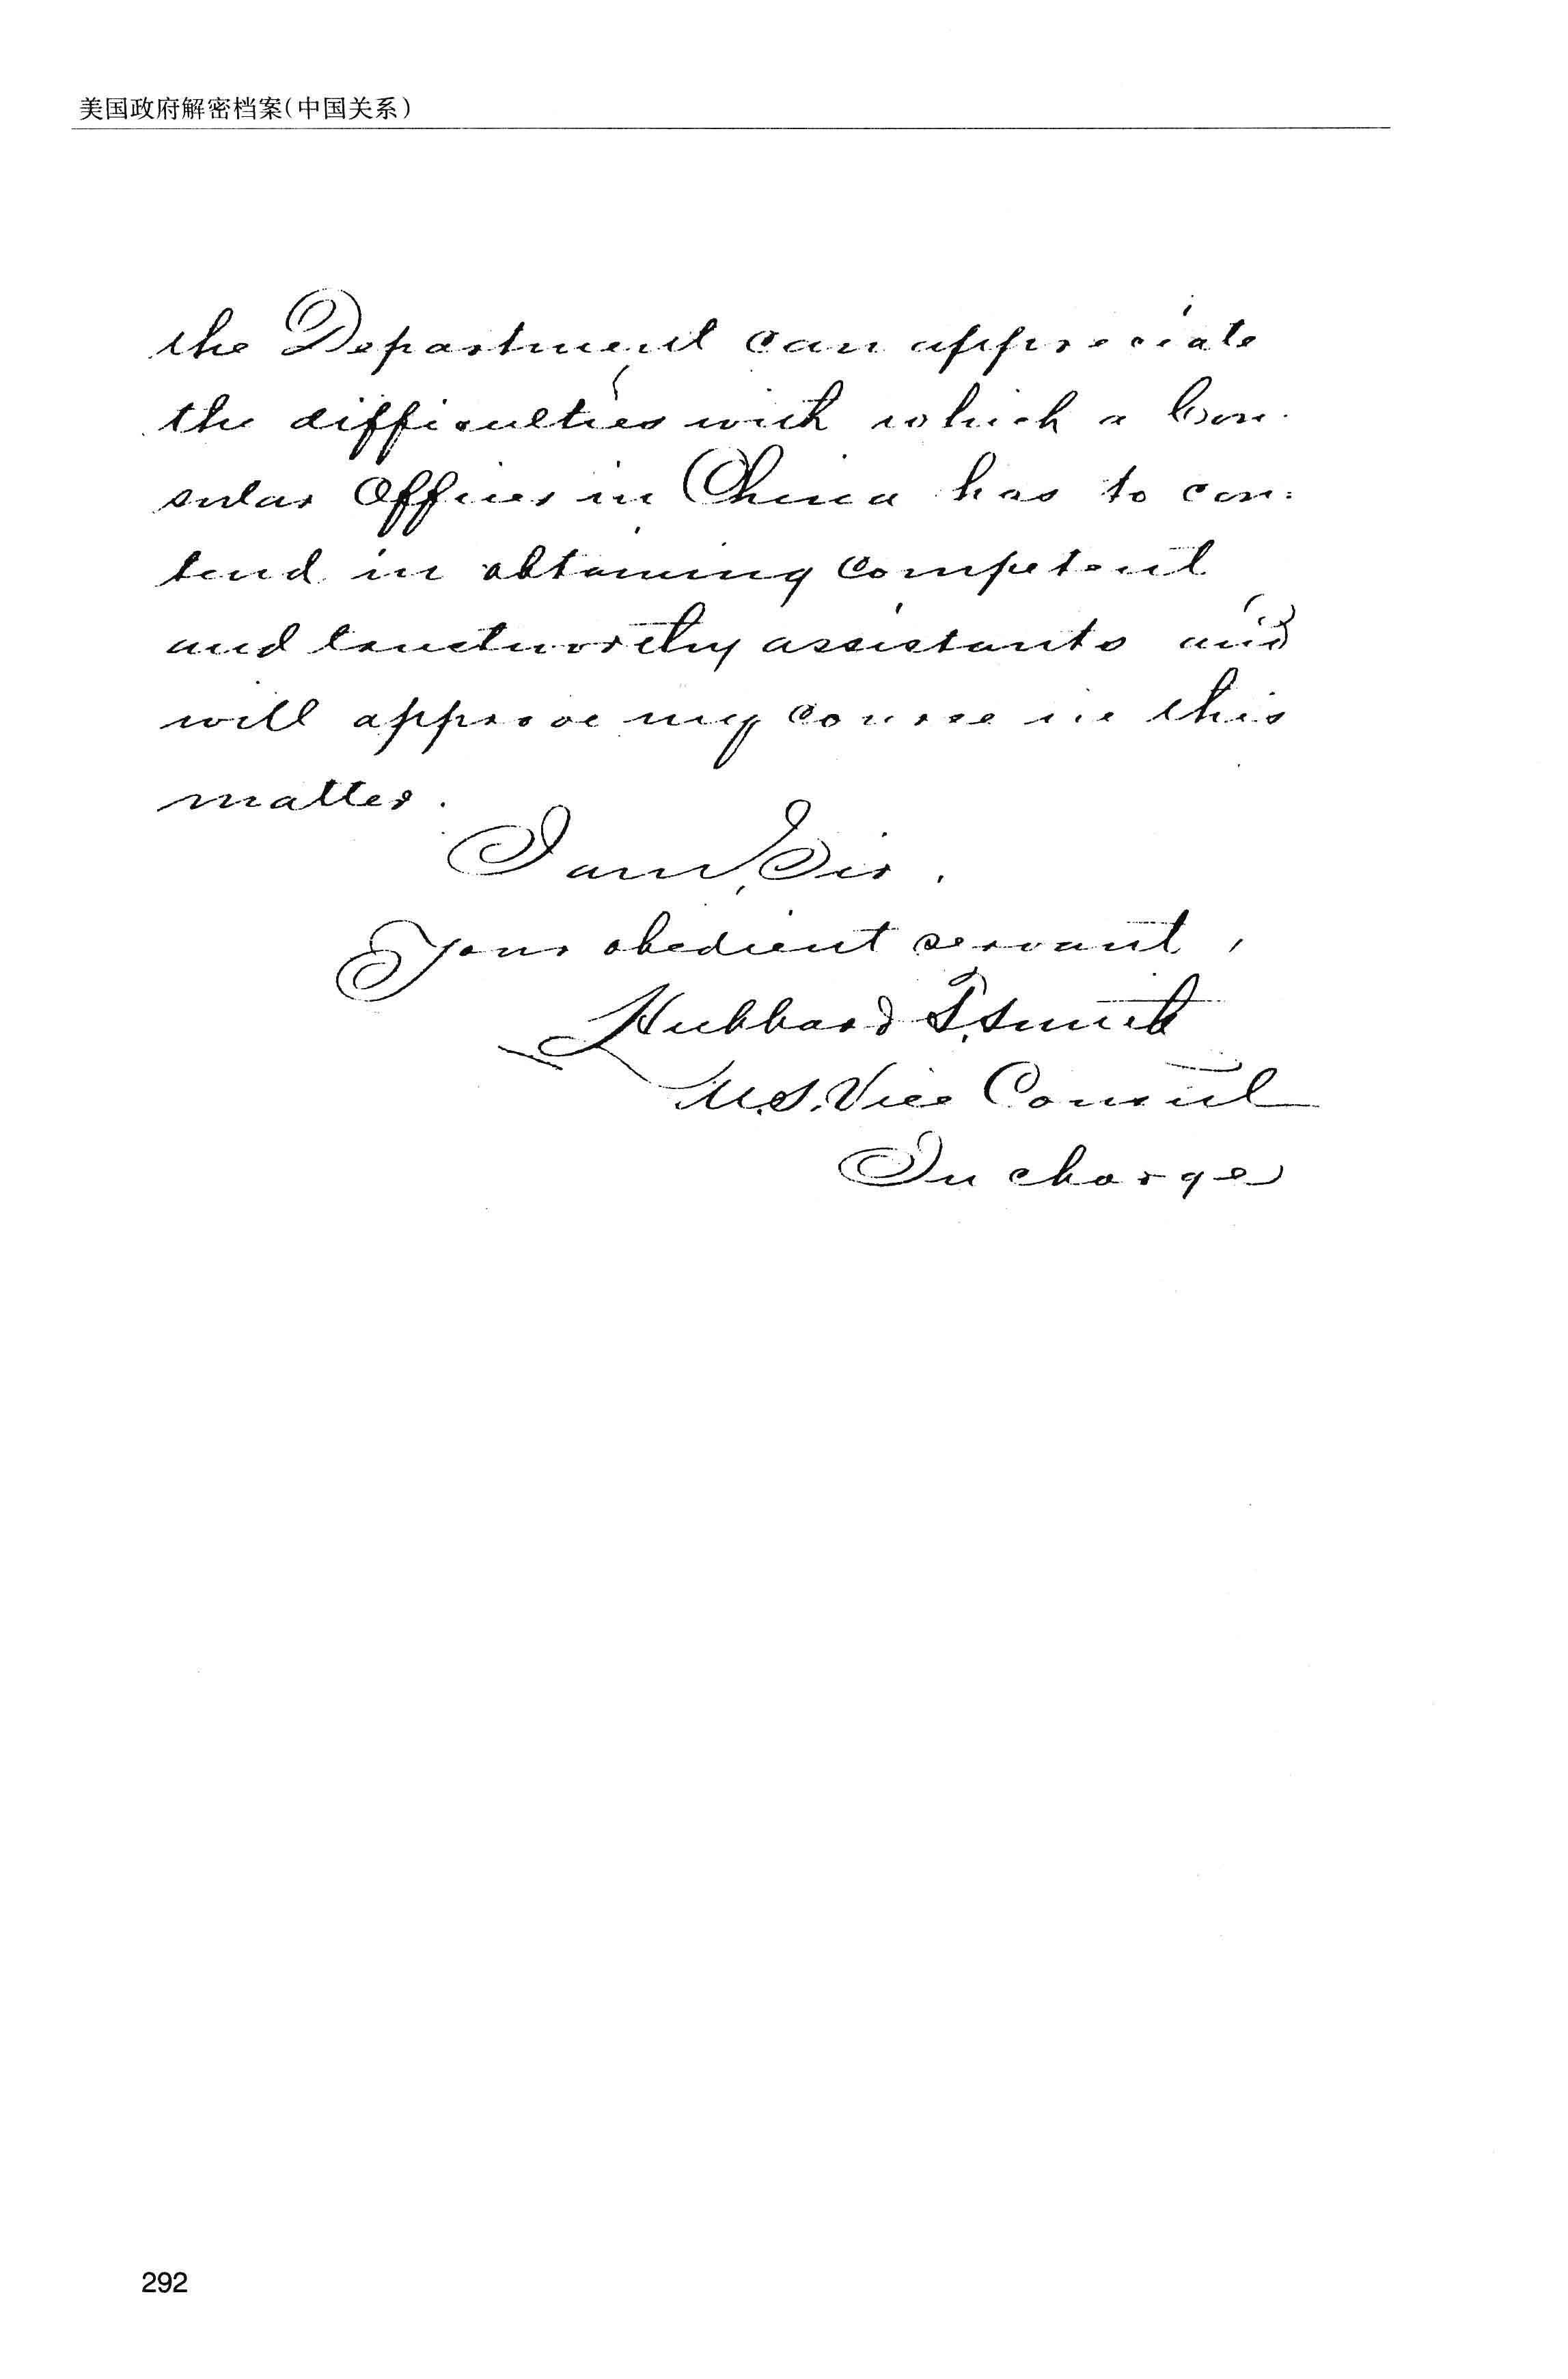 美国政府解密档案(中国关系)
the Department can appreciate
the difficulties with which a Con-
sular Officer in China has to con:
tend in obtaining competent
and trustworthy assistants and
will approve my course in this
matter.
I am, Sir,
Your obedient servant,
Hubbard T. Smith
U.S. Vice Consul
In charge
292